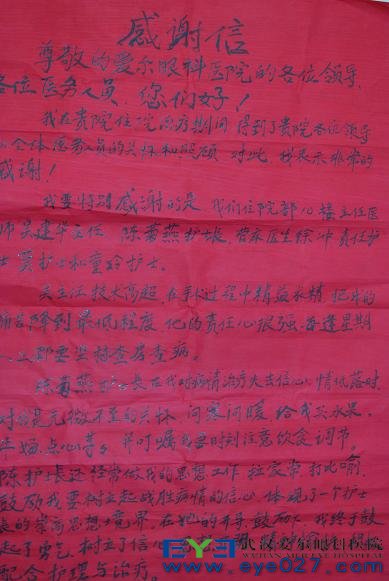 感谢信
尊敬的爱尔眼科医院的各位领导,
各位医务人员,您们好!
我在贵院住院治疗期间得到了贵院各位领导
全体医务人员的关怀和照顾 对此,我表示非常的
感谢!
我要特别感谢的是,我们住院部10楼主任医
师吴建华主任 陈菊燕护长,管床医生徐冲 责任护
士 护士和童玲护士。
吴主任技术高超,在手术过程中精益求精,把我的
痛苦降到最低程度 他的责任心很强 每逢星期
都要坐 查房查病。
陈菊燕护长在我对病情治疗失去信心 情低落时
对我是无微不至的关怀 问寒问暖 给我买水果,
点心等,并叮嘱我要时刻注意饮食调节。
陈护长还经常做我的思想工作 拉家常 打比喻,
鼓励我要树立起战胜病情的信心 体现了一个护士
长的崇高思想境界,在她的开导鼓励下 我终于鼓
起了勇气 树立了信心
配合护理与治疗。
EYE 武汉爱尔眼科医院
WUHAN AIER EYE HOSPITAL
www.eye027.com